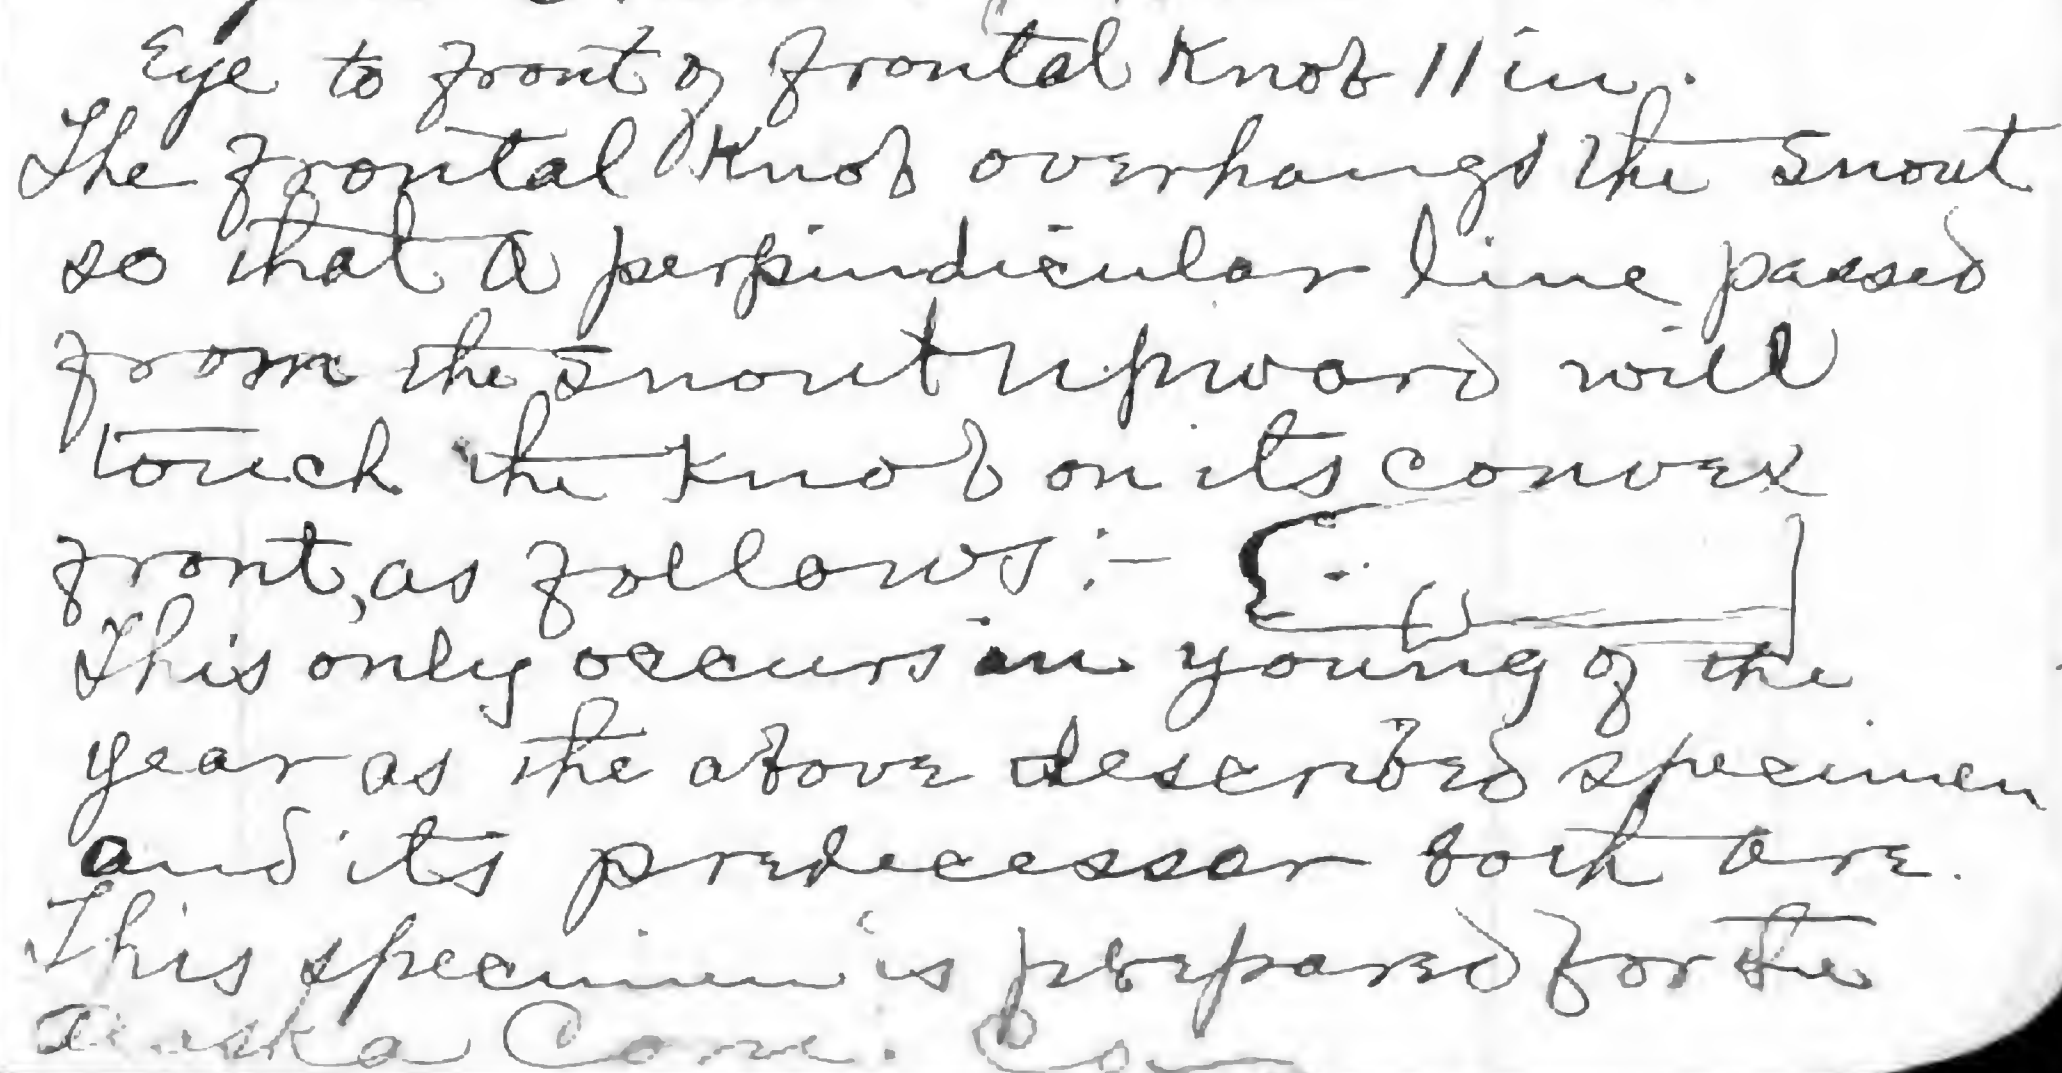 Eye to front of frontal Knob 11 in.
The frontal Knob overhangs the snout
so that a perpindicular line passed
from the snout upward will
touch the Knob on its convex
front, as follows:-
This only occurs in young of the
year as the above described specimen
and its predecessor both are.
This specimen is prepared for the
Alaska Com. Co